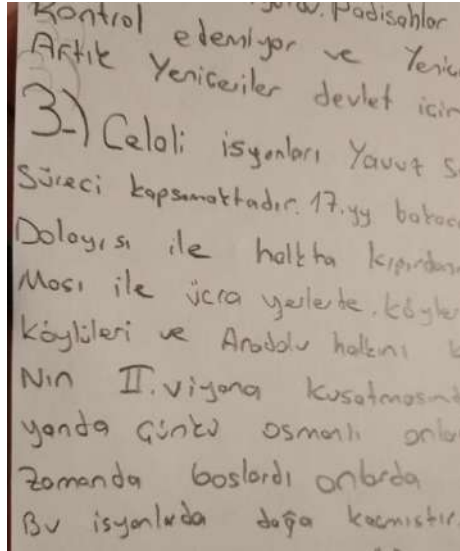 Padisahlar
Kontrol edemiyor ve Yenic
Artık Yeniceriler devlet icin
3-) Celali isyanları Yavuz S
Süreci kapsamaktadır. 17.yy bakac
Dolayısı ile halkta kıpırdan
Ması ile ücra yerlerde. köyler
Köylüleri ve Anadolu halkını
Nın II. viyana kusatmasın
yanda Günkü osmanlı onla
Zamanda boslardı onlarda
Bu isyanlarda dağa kacmıstır.